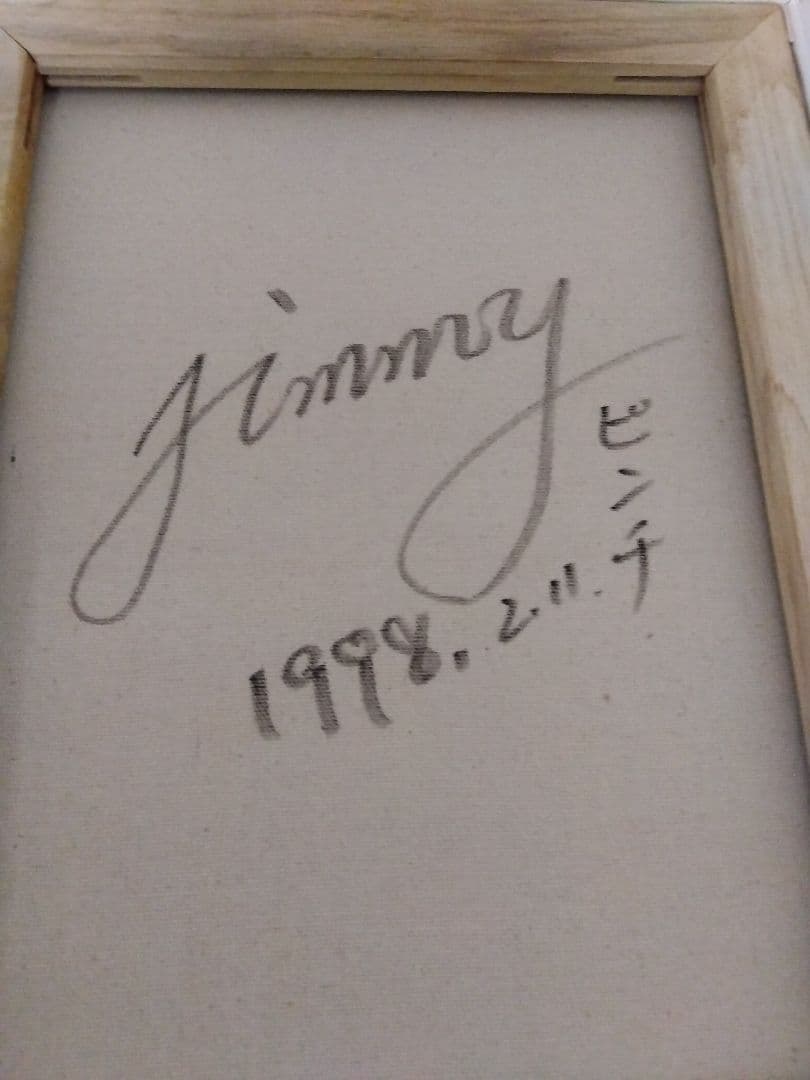 Jimmy
1998.2.11.